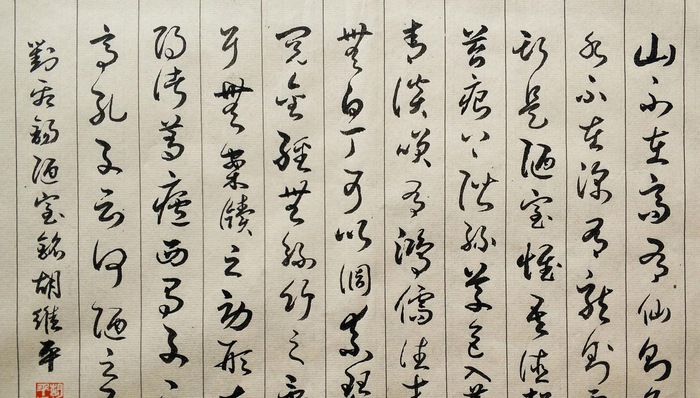 山不在高有仙則
水不在深有龍則
斯是陋室惟吾德
苔痕上階綠草色入
青談笑有鴻儒往来
無白丁可以調素琴
閱金經無絲竹之
耳無案牘之勞形
陽諸葛廬西蜀子
亭孔子云何陋之
劉禹錫陋室銘胡維平